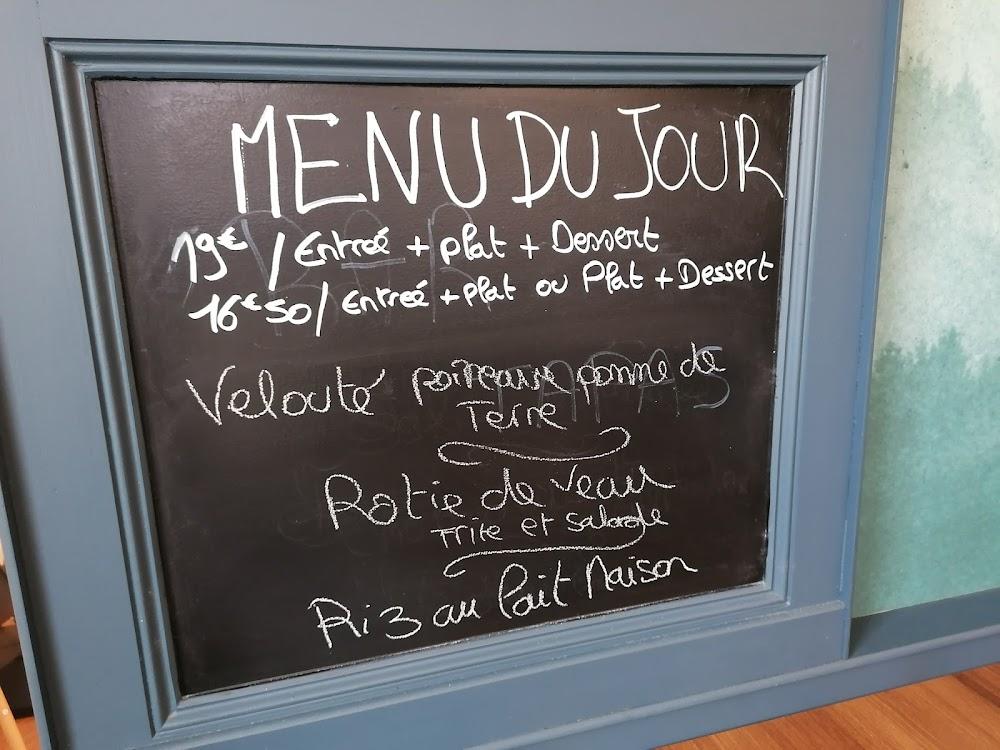 MENU DU JOUR
19€ / Entreé + plat + Dessert
16€50 / Entreé + Plat ou Plat + Dessert
Velouté poireaux pomme de
Terre
Rotie de veau
frite et salade
Riz au lait Maison
TAPAS